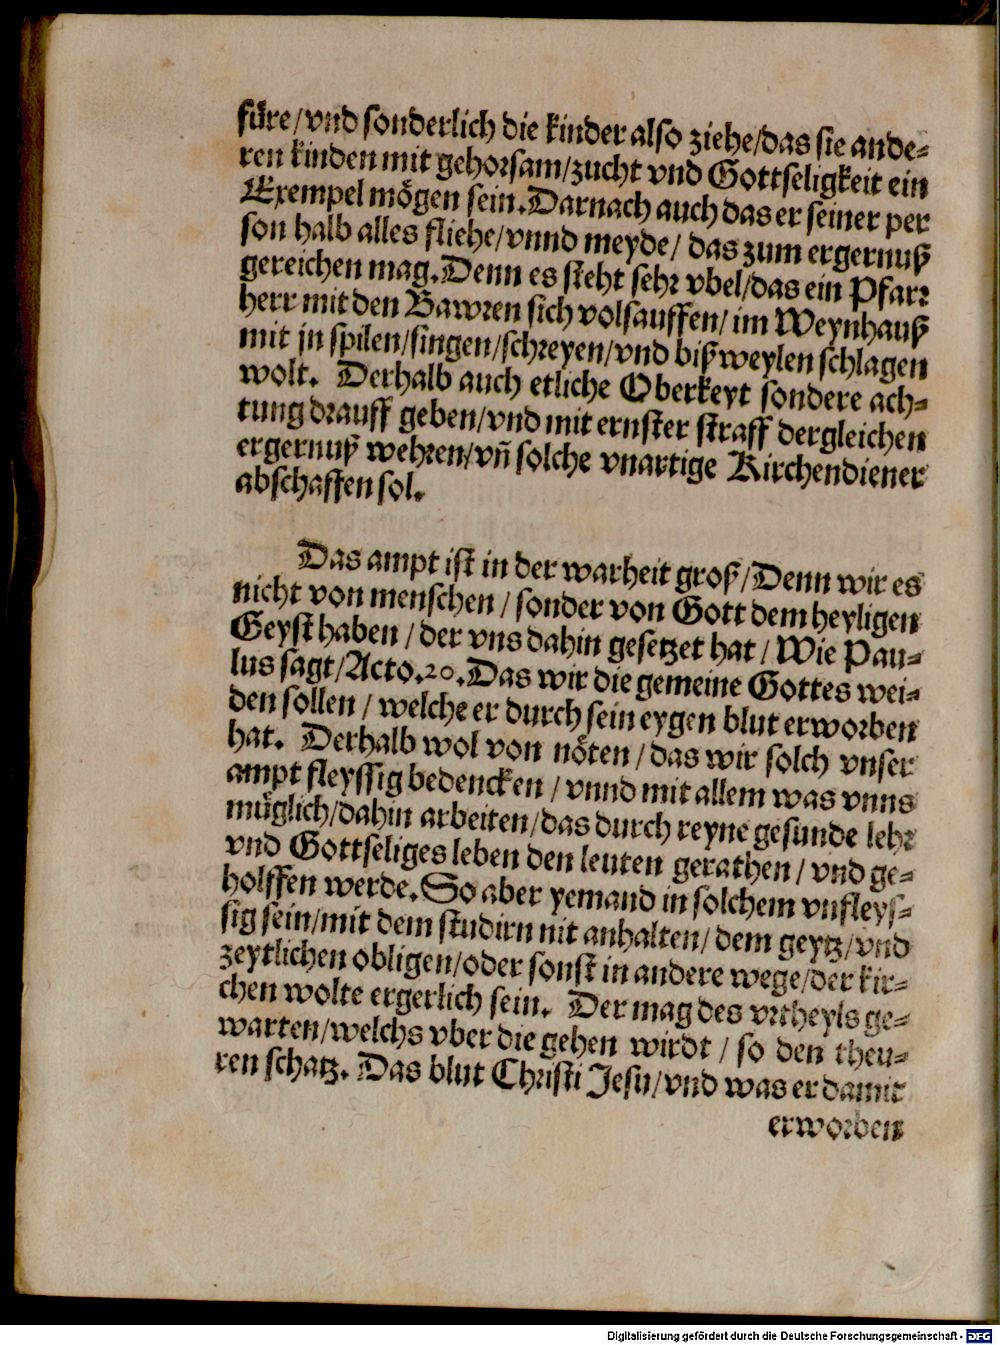 füre/vnd sonderlich die kinder also ziehe/das sie ande-
ren kinden mit gehorsam/zucht vnd Gottseligkeit ein
Exempel mögen sein. Darnach auch das er seiner per
son halb alles fliehe/vnnd meyde/ das zum ergernuß
gereichen mag. Denn es steht sehr vbel/das ein Pfarr
herr mit den Bawren sich volsauffen/ im Weynhauß
mit jn spilen/singen/schreyen/vnd bißweylen schlagen
wolt. Derhalb auch etliche Oberkeyt sondere ach-
tung drauff geben/vnd mit ernster straff dergleichen
ergernuß wehren/vñ solche vnartige Kirchendiener
abschaffen sol.
Das ampt ist in der warheit groß/Denn wir es
nicht von menschen / sonder von Gott dem heyligen
Geyst haben / der vns dahin gesetzet hat / Wie Pau-
lus sagt/Acto.20. Das wir die gemeine Gottes wei-
den sollen / welche er durch sein eygen blut erworben
hat. Derhalb wol von nöten / das wir solch vnser
ampt fleyssig bedencken / vnnd mit allem was vnns
müglich/dahin arbeiten/das durch reyne gesunde lehr
vnd Gottseliges leben den leuten gerathen / vnd ge-
holffen werde. So aber yemand in solchem vnfleys-
sig sein/mit dem studirn nit anhalten/ dem geytz/vnd
zeytlichen obligen/oder sonst in andere wege/der kir-
chen wolte ergerlich sein. Der mag des vrtheyls ge-
warten/welchs vber die gehen wirdt / so den theu-
ren schatz. Das blut Christi Jesu/vnd was er damit
erworben
Digitalisierung gefördert durch die Deutsche Forschungsgemeinschaft - DFG